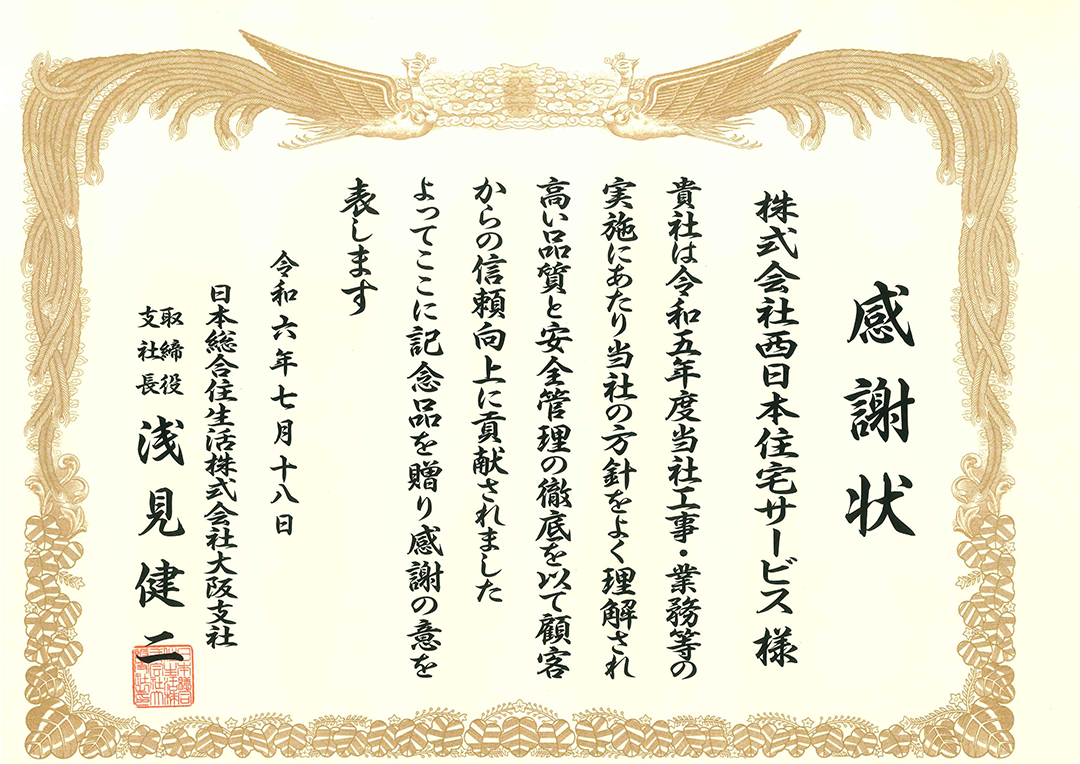 感謝状
株式会社西日本住宅サービス様
貴社は令和五年度当社工事・業務等の
実施にあたり当社の方針をよく理解され
高い品質と安全管理の徹底を以て顧客
からの信頼向上に貢献されました
よってここに記念品を贈り感謝の意を
表します
令和六年七月十八日
日本総合住生活株式会社大阪支社
取締役
支社長
浅見健二